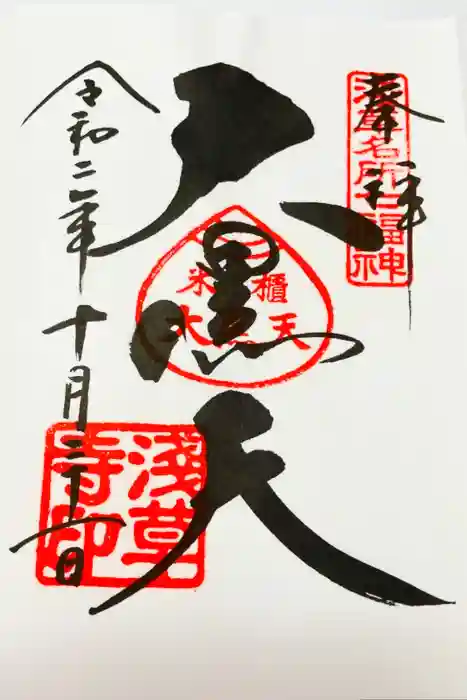 奉拝
浅草名所七福神
大黒天
米櫃
大黒天
令和二年十月三十一日
淺草寺印